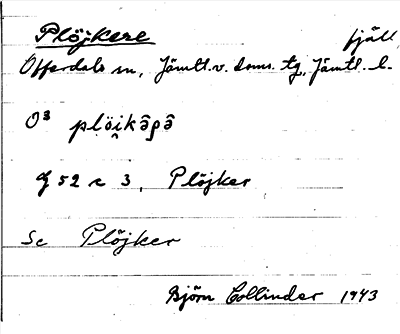 Plöjkere fjäll
Offerdals sn, Jämtl. v. doms. tg, Jämtl. l.
O³ plöi̯kâpâ
G 52 c 3, Plöjker
Se Plöjker
Björn Collinder 1943